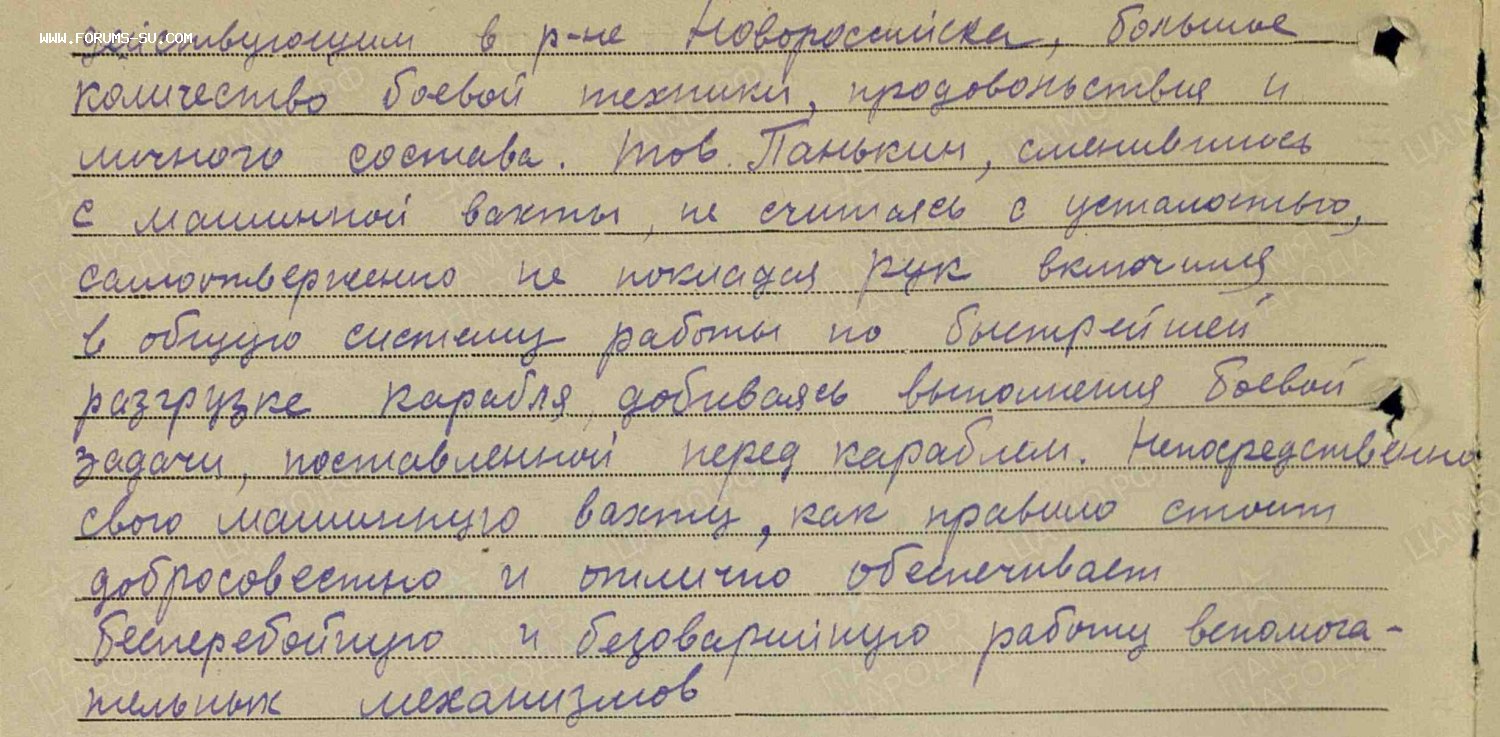 WWW.FORUMS-SU.COM
действующим в р-не Новороссийска, большое
количество боевой техники, продовольствия и
личного состава. Тов. Панькин, сменившись
с машинной вахты, не считаясь с усталостью,
самоотверженно не покладая рук включился
в общую систему работы по быстрейшей
разгрузке карабля, добиваясь выполнения боевой
задачи, поставленной перед караблем. Непосредственно
свою машинную вахту, как правило стоит
добросовестно и отлично обеспечивает
бесперебойную и безоварийную работу вспомога-
тельных механизмов